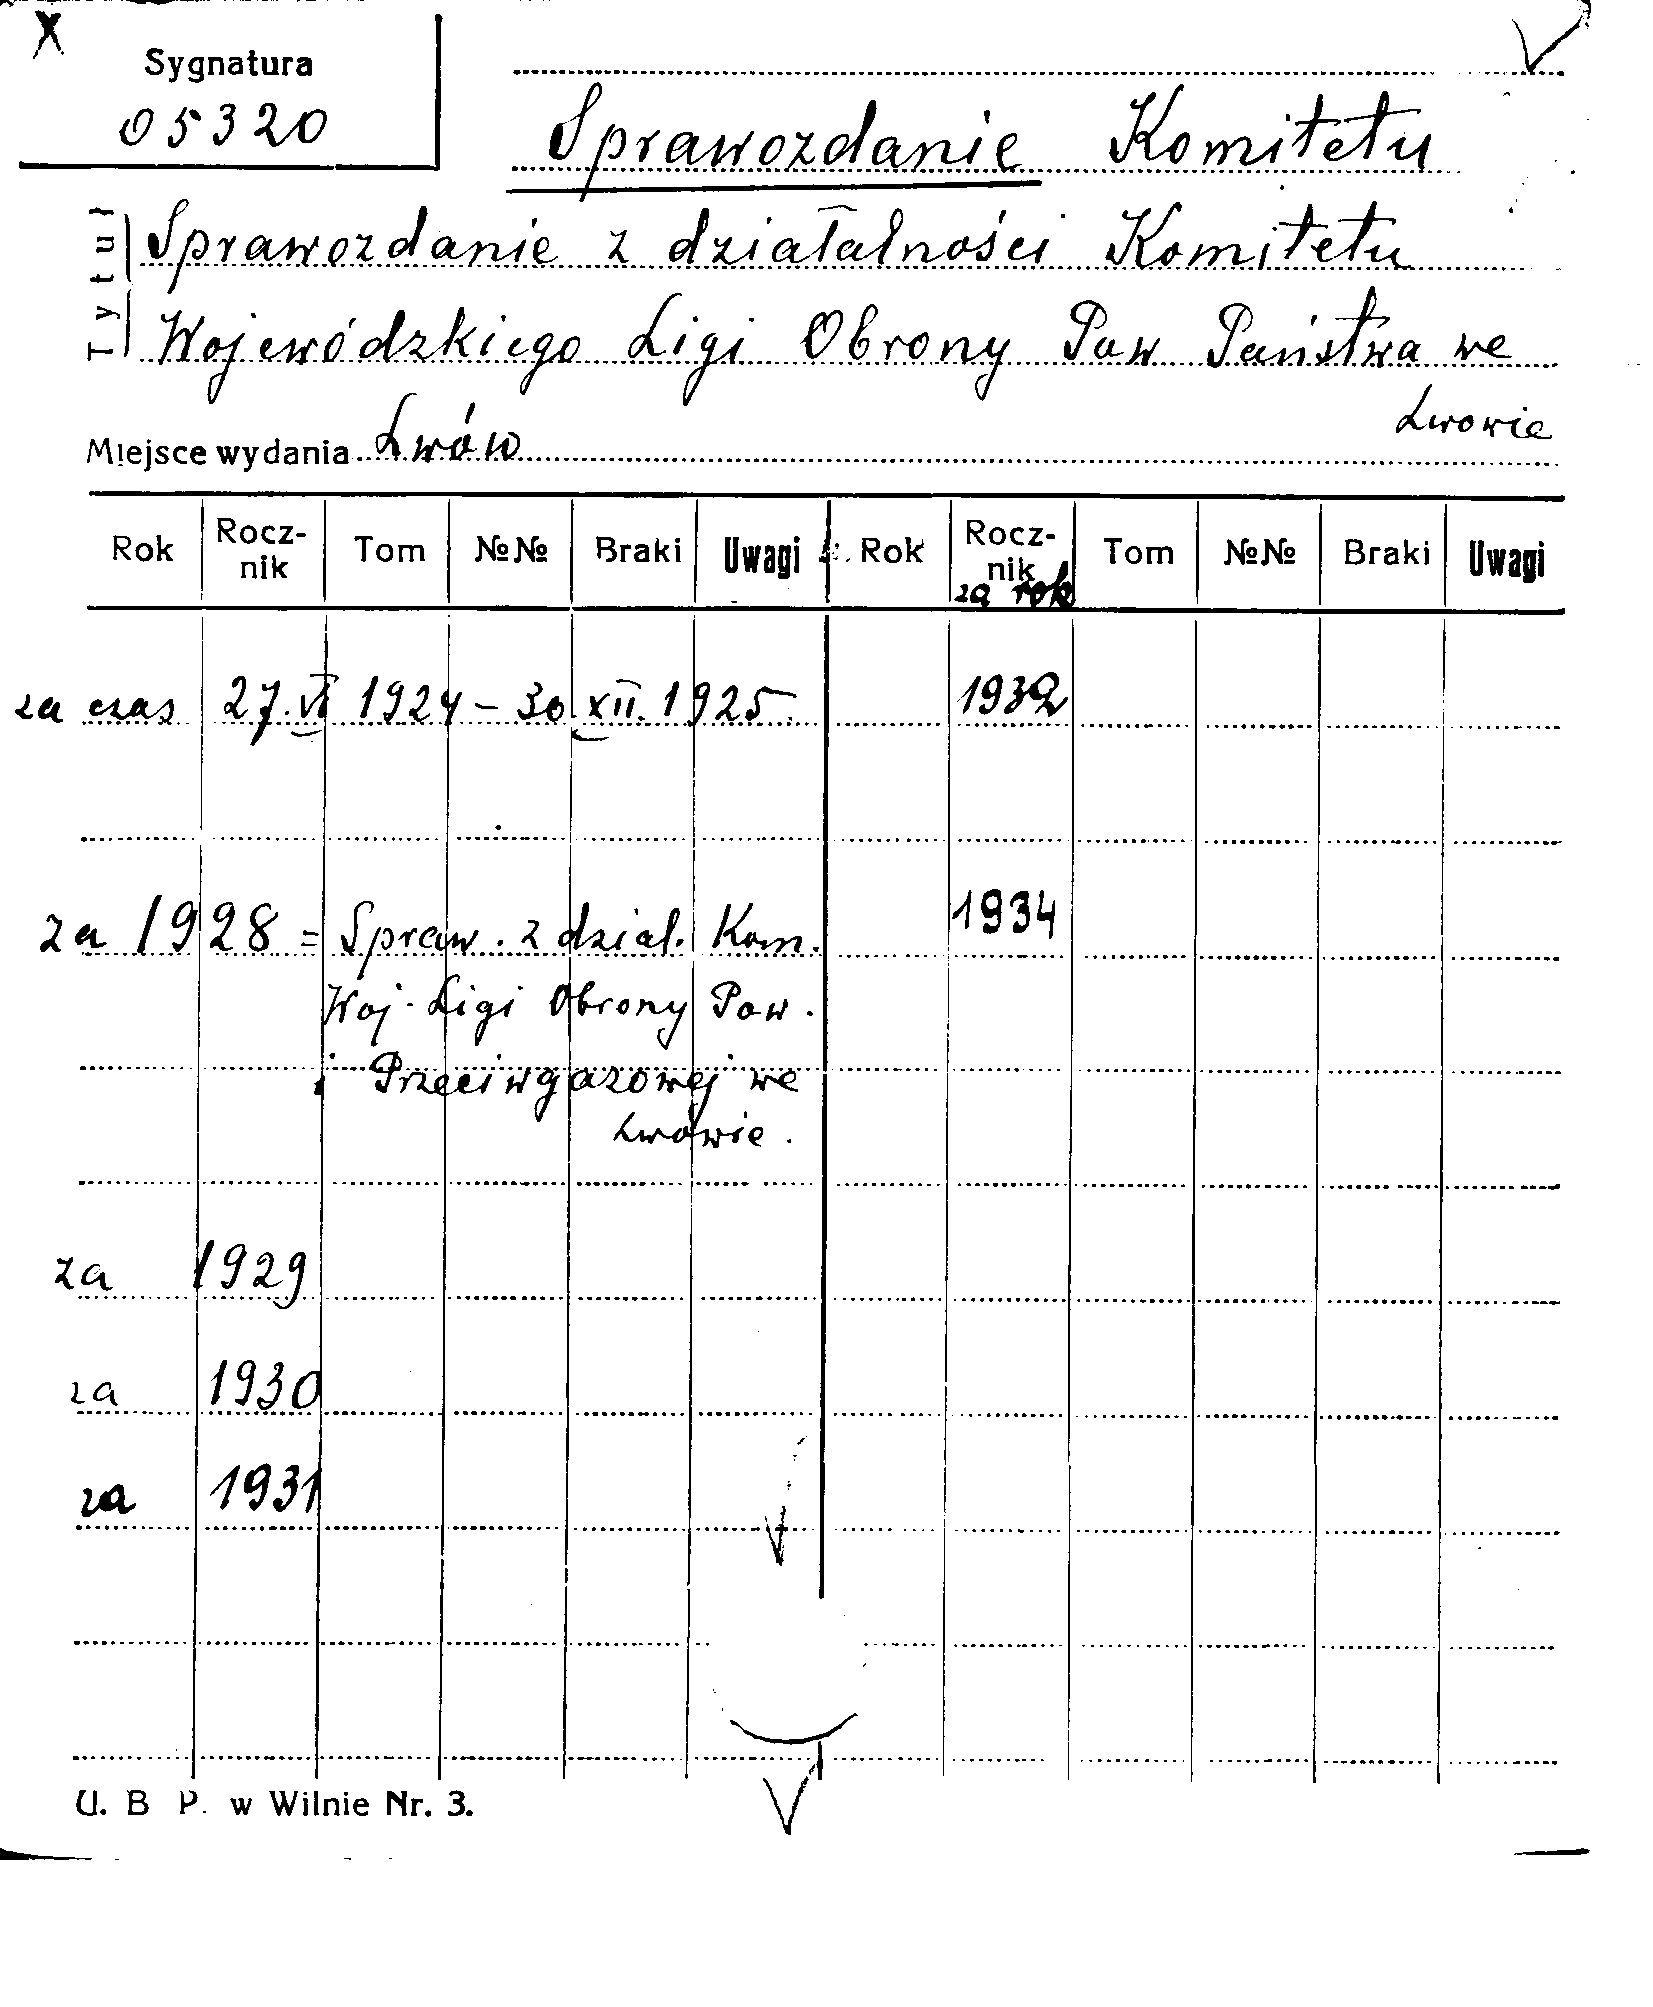 X
Sygnatura
05320
Sprawozdanie Komitetu
Tytuł
Sprawozdanie z działalności Komitetu
Wojewódzkiego Ligi Obrony Pow Państwa we
Lwowie
Miejsce wydania Lwów
Rok Rocz-nik Tom №№ Braki Uwagi Rok Rocz-nik za rok Tom №№ Braki Uwagi
za czas 27.VI 1924 – 30 XII. 1925 1932
za 1928 = Spraw. z dział. Kom. 1934
Woj. Ligi Obrony Pow.
i Przeciwgazowej we
Lwowie.
za 1929
za 1930
za 1931
U. B P. w Wilnie Nr. 3.